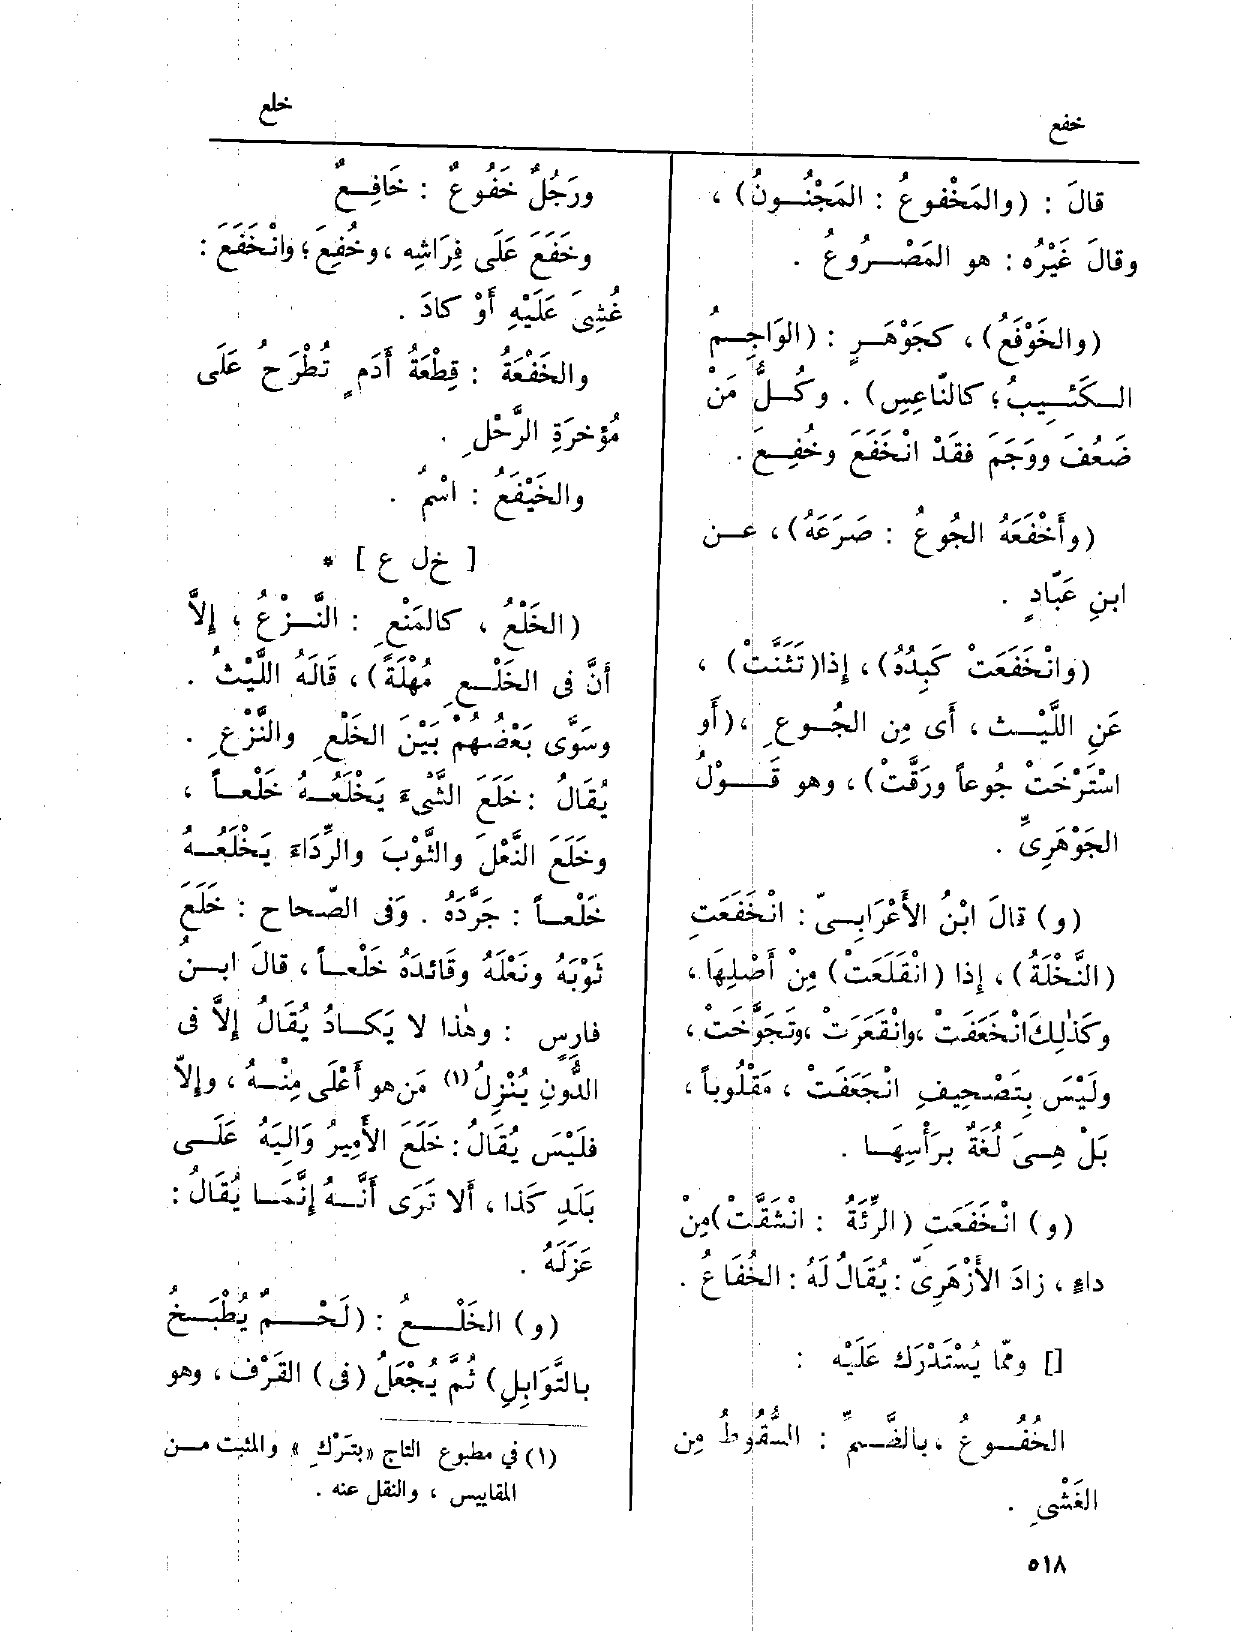 خفع
خلع
قالَ : (والمَخْفوعُ : المَجْنُـونُ) ،
وقالَ غَيْرُه : هو المَصْـرُوعُ .
(والخَوْفَعُ) ، كجَوْهَـرٍ : (الوَاجِـمُ
الـكَئـِيبُ؛ كالنّاعِسِ) . وكُـلُّ مَنْ
ضَعُفَ ووَجَمَ فقَدْ انْخَفَعَ وخُفِـعَ .
(وأَخْفَعَهُ الجُوعُ : صَرَعَهُ) ، عـن
ابنِ عَبّادٍ .
(وانْخَفَعَتْ كَبِدُهُ) ، إذا (تَثَنَّتْ) ،
عَنِ اللَّيْـثِ ، أَى مِن الجُـوعِ ، (أَو
اسْتَرْخَتْ جُوعاً ورَقَّتْ) ، وهو قَـوْلُ
الجَوْهَرِىِّ .
(و) قالَ ابْنُ الأَعْرَابِـىّ : انْخَفَعَتِ
(النَّخْلَةُ) ، إذا (انْقَلَعَتْ) مِنْ أَصْلِهَا ،
وكَذٰلِكَ انْخَعَفَتْ ، وانْقَعَرَتْ ، وتَجَوَّخَتْ ،
ولَيْسَ بِتَصْحِيفِ انْجَعَفَتْ ، مَقْلُوباً ،
بَلْ هِـىَ لُغَةٌ برَأْسِهَـا .
(و) انْخَفَعَتِ (الرِّئَةُ : انْشَقَّتْ) مِنْ
داءٍ ، زادَ الأَزْهَرِىّ : يُقَالُ لَهُ : الخُفَاعُ .
[] وممّا يُسْتَدْرَك عَلَيْه :
الخُفُـوعُ ، بالضَّـمِّ : السُّقُوطُ مِن
الغَشْىِ .
ورَجُلٌ خَفُوعٌ : خَافِـعٌ
وخَفَعَ عَلَى فِرَاشِه ، وخُفِعَ ؛ وانْخَفَعَ :
غُشِىَ عَلَيْهِ أَوْ كادَ .
والخَفْعَةُ : قِطْعَةُ أَدَمٍ تُطْرَحُ عَلَى
مُؤخرَةِ الرَّحْلِ .
والخَيْفَعُ : اسْمٌ .
[ خ ل ع ] *
(الخَلْعُ ، كالمَنْعِ : النَّـزْعُ ، إلاَّ
أَنَّ فى الخَلْـعِ مُهْلَةً) ، قَالَهُ اللَّيْثُ .
وسَوَّى بَعْضُهُمْ بَيْنَ الخَلْعِ والنَّزْعِ .
يُقَالُ : خَلَعَ الشَّىْءَ يَخْلَعُـهُ خَلْعـاً ،
وخَلَعَ النَّعْلَ والثَّوْبَ والرِّدَاءَ يَخْلَعُـهُ
خَلْعـاً : جَرَّدَهُ . وَفى الصّحاح : خَلَعَ
ثَوْبَهُ ونَعْلَهُ وقَائدَهُ خَلْعـاً ، قالَ ابـنُ
فارِسٍ : وهٰذا لا يَكـادُ يُقَالُ إلاَّ فى
الدُّونِ يُنْزِلُ (١) مَن هو أَعْلَى مِنْـهُ ، وإلاّ
فلَيْسَ يُقَالُ : خَلَعَ الأَمِيرُ وَالِيَهُ عَلَـى
بَلَدِ كَذا ، أَلا تَرَى أَنَّـهُ إنَّمَـا يُقَالُ :
عَزَلَهُ .
(و) الخَلْـعُ : (لَحْـمٌ يُطْبَـخُ
بالتَّوَابِلِ) ثُمَّ يُجْعَلُ (فى) القَرْف ، وهو
(١) في مطبوع التاج «بتَرْكِ » والمثبت مـن
المقاييس ، والنقل عنه .
٥١٨